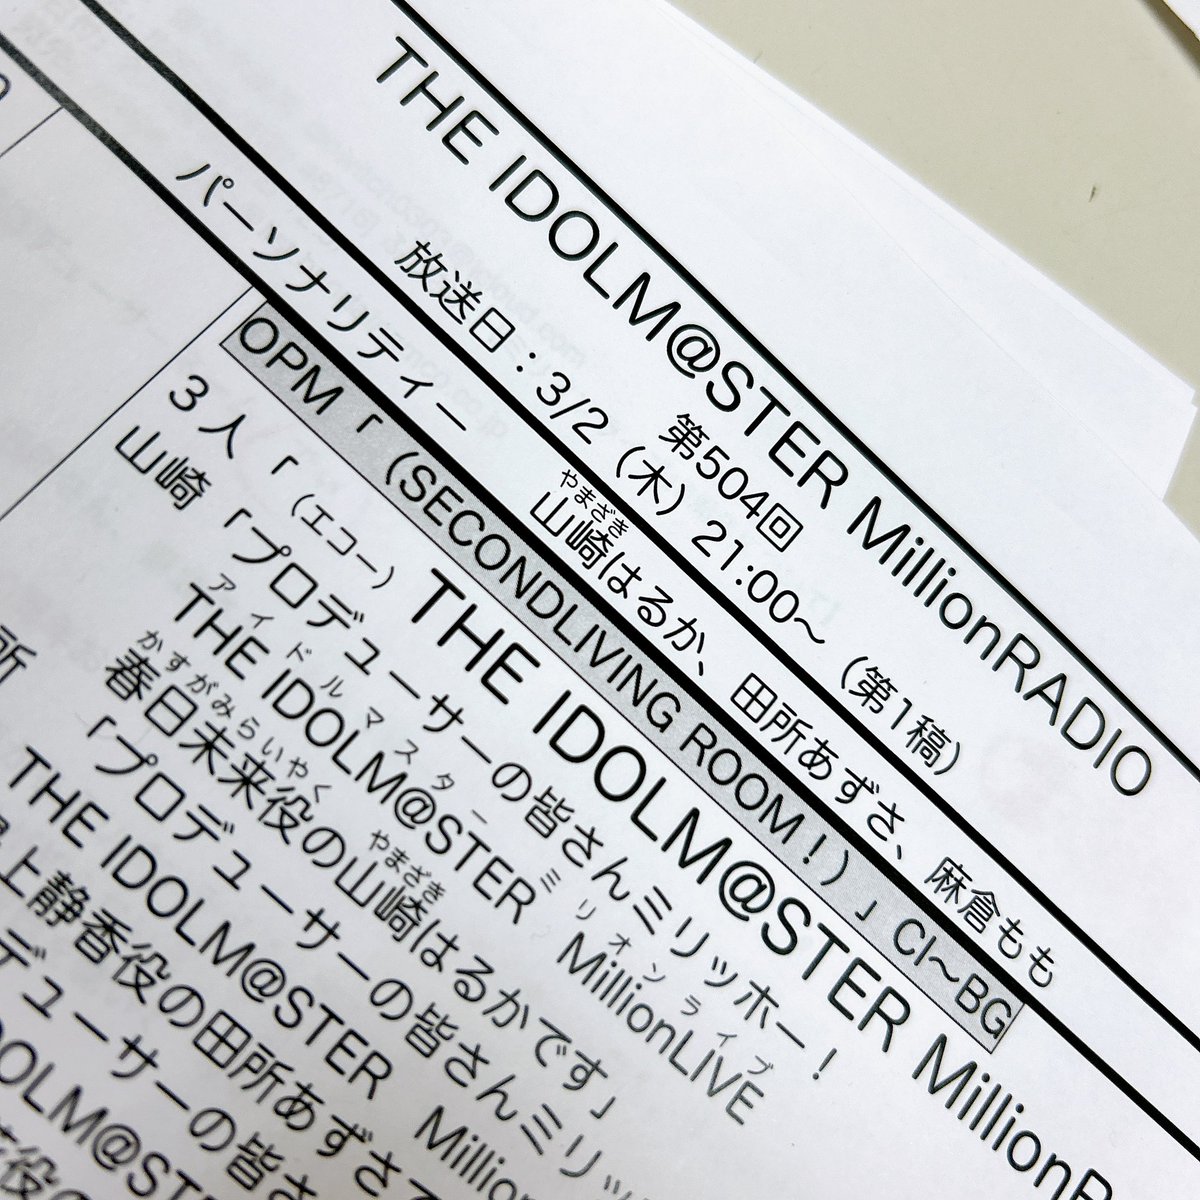 THE IDOLM@STER MillionRADIO
第504回
放送日：3/2（木）21:00～（第1稿）
パーソナリティー 山崎はるか、田所あずさ、麻倉もも
やまざき
OPM「（SECONDLIVING ROOM！）」CI～BG
3人「（エコー）THE IDOLM@STER Million
山崎「プロデューサーの皆さんミリッホー！
アイドルマスター ミリオンライブ
THE IDOLM@STER MillionLIVE
かすがみらいやく やまざき
春日未来役の山崎はるかです」
所
「プロデューサーの皆さんミリッ
THE IDOLM@STER Million
上静香役の田所あずさ
デューサーの皆さ
DOLM@ST
役の